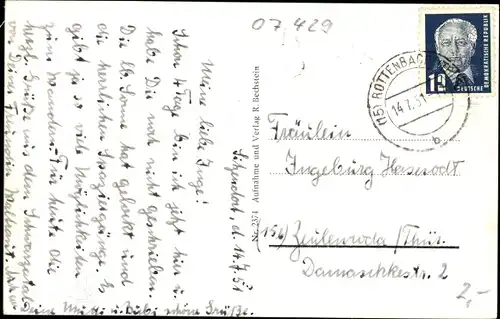 07429
Sitzendorf, d. 14.7.51
Meine liebe Inge!
Schon 4 Tage bin ich jetzt hier u.
habe Dir noch nicht geschrieben.
Die lb. Sonne hat gelockt und
die herrlichen Spaziergänge. Es
gibt ja so viele Möglichkeiten
zum Wandern. Für heute die
herzl. Grüße aus dem Schwarzatal
von Deiner Freundin Waltraut
Deine Mutti u. Bubi schöne Grüße.
Nr. 2374 Aufnahme und Verlag R. Bechstein
(15) ROTTENBACH
14.7.51
b
12
DEUTSCHE
DEMOKRATISCHE REPUBLIK
Fräulein
Ingeburg Haserodt
15b) Zeulenroda/Thür.
Damaschkestr. 2
2,-